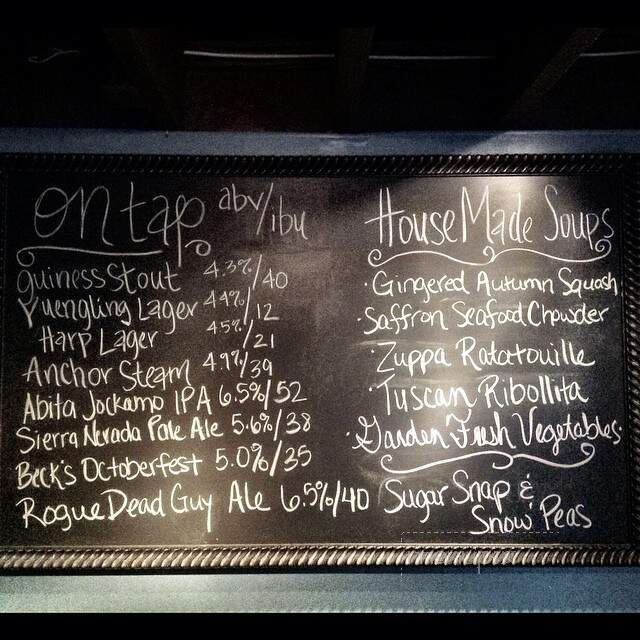 On tap abv/ibu
guiness Stout 4.3%/40
Yuengling Lager 4.4%/12
Harp Lager 4.5%/21
Anchor Steam 4.9%/39
Abita Jockamo IPA 6.5%/52
Sierra Nevada Pale Ale 5.6%/38
Beck's Octoberfest 5.0%/35
Rogue Dead Guy Ale 6.5%/40
House Made Soups
· Gingered Autumn Squash
· Saffron Seafood Chowder
· Zuppa Ratatouille
· Tuscan Ribollita
· Garden Fresh Vegetables ·
Sugar Snap &
Snow Peas